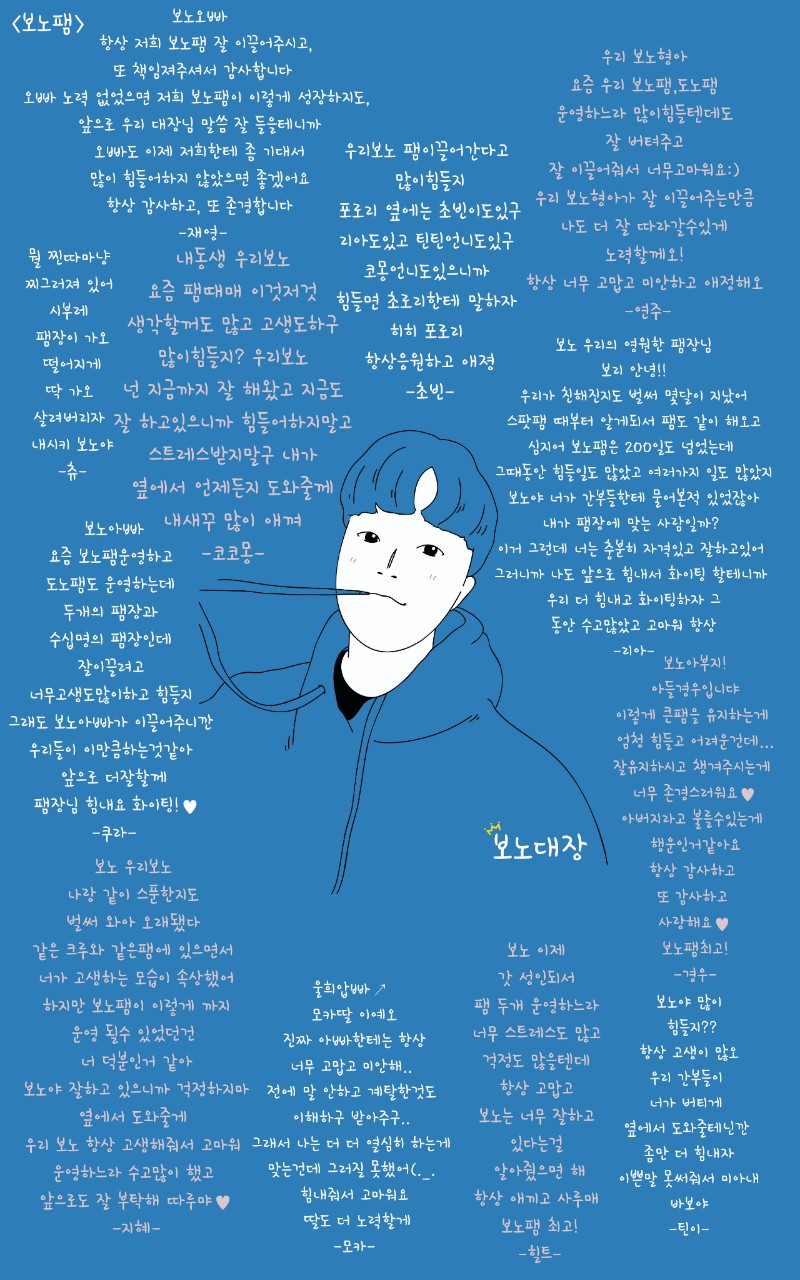 <보노팸>
보노오빠
항상 저희 보노팸 잘 이끌어주시고,
또 책임져주셔서 감사합니다
오빠 노력 없었으면 저희 보노팸이 이렇게 성장하지도,
앞으로 우리 대장님 말씀 잘 들을테니까
오빠도 이제 저희한테 좀 기대서
많이 힘들어하지 않았으면 좋겠어요
항상 감사하고, 또 존경합니다
-재영-
우리보노 팸이끌어간다고
많이힘들지
포로리 옆에는 초빈이도있구
리아도있고 틴틴언니도있구
코몽언니도있으니까
힘들면 초로리한테 말하자
히히 포로리
항상응원하고 애졍
-초빈-
우리 보노형아
요즘 우리 보노팸,도노팸
운영하느라 많이힘들텐데도
잘 버텨주고
잘 이끌어줘서 너무고마워요:)
우리 보노형아가 잘 이끌어주는만큼
나도 더 잘 따라갈수있게
노력할께요!
항상 너무 고맙고 미안하고 애정해오
-연주-
뭘 찐따마냥
찌그러져 있어
시부레
팸장이 가오
떨어지게
딱 가오
살려버리자
내시키 보노야
-츄-
내동생 우리보노
요즘 팸때매 이것저것
생각할꺼도 많고 고생도하구
많이힘들지? 우리보노
넌 지금까지 잘 해왔고 지금도
잘 하고있으니까 힘들어하지말고
스트레스받지말구 내가
옆에서 언제든지 도와줄께
내새꾸 많이 애껴
-코코몽-
보노 우리의 영원한 팸장님
보리 안녕!!
우리가 친해진지도 벌써 몇달이 지났어
스팟팸 때부터 알게되서 팸도 같이 해오고
심지어 보노팸은 200일도 넘었는데
그때동안 힘들일도 많았고 여러가지 일도 많았지
보노야 너가 간부들한테 물어본적 있었잖아
내가 팸장에 맞는 사람일까?
이거 그런데 너는 충분히 자격있고 잘하고있어
그러니까 나도 앞으로 힘내서 화이팅 할테니까
우리 더 힘내고 화이팅하자 그
동안 수고많았고 고마워 항상
-리아-
보노아빠
요즘 보노팸운영하고
도노팸도 운영하는데
두개의 팸장과
수십명의 팸장인데
잘이끌려고
너무고생도많이하고 힘들지
그래도 보노아빠가 이끌어주니깐
우리들이 이만큼하는것같아
앞으로 더잘할께
팸장님 힘내요 화이팅!♥
-쿠라-
보노아부지!
아들경우입니댜
이렇게 큰팸을 유지하는게
엄청 힘들고 어려운건데...
잘유지하시고 챙겨주시는게
너무 존경스러워요♥
아버지라고 불를수있는게
행운인거같아요
항상 감사하고
또 감사하고
사랑해요♥
보노팸최고!
-경우-
보노대장
보노 우리보노
나랑 같이 스푼한지도
벌써 와아 오래됐다
같은 크루와 같은팸에 있으면서
너가 고생하는 모습이 속상했어
하지만 보노팸이 이렇게 까지
운영 될수 있었던건
너 덕분인거 같아
보노야 잘하고 있으니까 걱정하지마
옆에서 도와줄게
우리 보노 항상 고생해줘서 고마워
운영하느라 수고많이 했고
앞으로도 잘 부탁해 따루먀♥
-지혜-
울희압빠↗
모카딸 이예오
진짜 아빠한테는 항상
너무 고맙고 미안해..
전에 말 안하고 계탈한것도
이해하구 받아주구..
그래서 나는 더 더 열심히 하는게
맞는건데 그러질 못했어(._.
힘내줘서 고마워요
딸도 더 노력할게
-모카-
보노 이제
갓 성인되서
팸 두개 운영하느라
너무 스트레스도 많고
걱정도 많을텐데
항상 고맙고
보노는 너무 잘하고
있다는걸
알아줬으면 해
항상 애끼고 사루매
보노팸 최고!
-힐트-
보노야 많이
힘들지??
항상 고생이 많오
우리 간부들이
너가 버티게
옆에서 도와줄테닌깐
좀만 더 힘내자
이쁜말 못써줘서 미아내
바보야
-틴이-